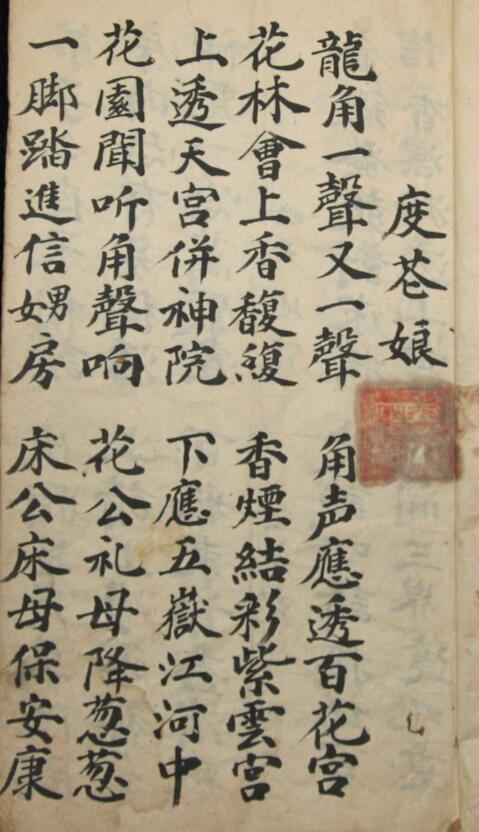 度苍娘
龍角一聲又一聲 角声應透百花宮
花林會上香馥複 香煙結彩紫雲宮
上透天宮併神院 下應五嶽江河中
花園聞听角聲响 花公礼母降葱葱
一脚踏進信男女房 床公床母保安康